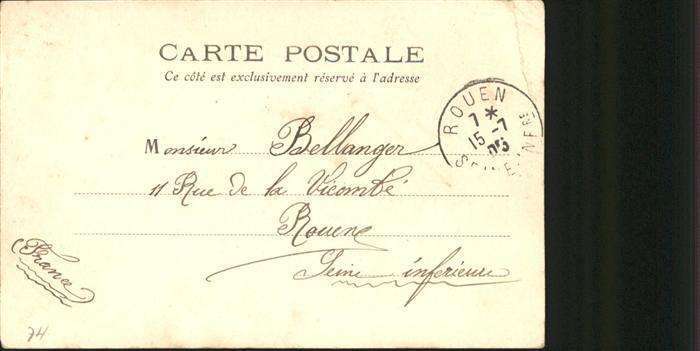 CARTE POSTALE
Ce côté est exclusivement réservé à l'adresse
ROUEN
7 *
15 -7
05
SEINE INFRE
Monsieur Bellanger
11 Rue de la Vicomté
Rouen
Seine inférieure
France
74